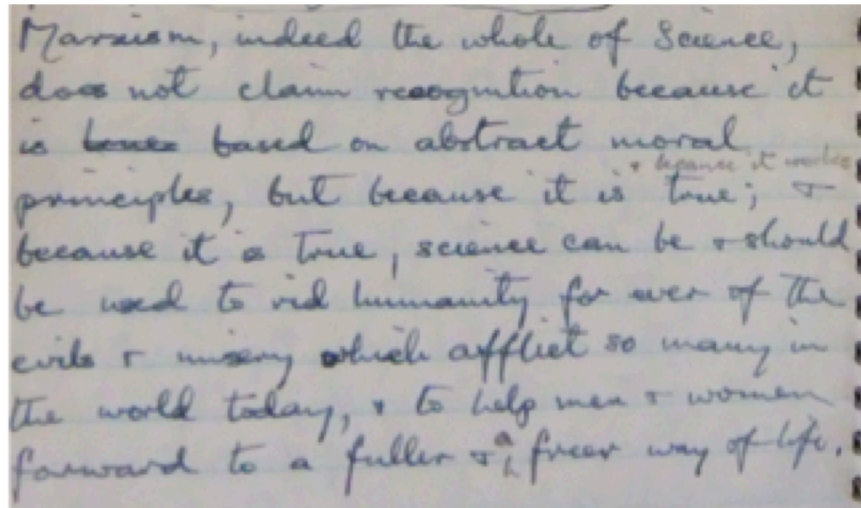 Marxism, indeed the whole of Science,
does not claim recognition because it
is based on abstract moral
+ because it works
principles, but because it is true; +
because it is true, science can be + should
be used to rid humanity for ever of the
evils + misery which afflict so many in
the world today, + to help men + women
forward to a fuller + a freer way of life.